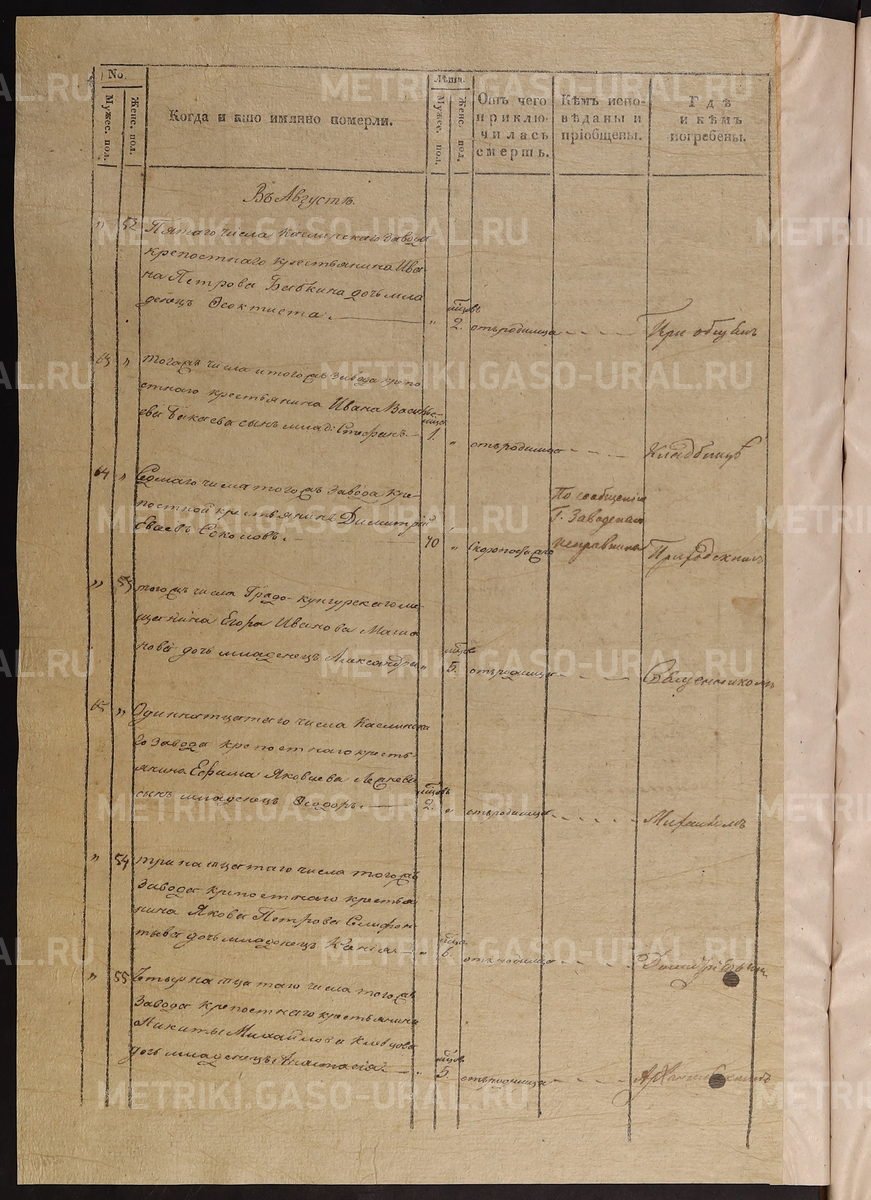 No.
Мужес. пол.
Женс. пол.
Когда и кто имянно померли.
Лѣта.
Мужес. пол.
Женс. пол.
Отъ чего
приклю-
чилась
смерть.
Кѣмъ испо-
вѣданы и
пріобщены.
Гдѣ
и кѣмъ
погребены.
Въ Августѣ
" 52 Пятаго числа Каслинскаго завода
крепостнаго крестьянина Ива
на Петрова Бабкина дочь мла
денецъ Ѳеоктиста.
" мцовъ 2. отъ родимца
При общемъ
63 " того жъ числа и того жъ завода крепо
стнаго крестьянина Ивана Василь
ева сынъ млад: Стефанъ.
1. " отъ родимца
Кладбищѣ
64 " Седмаго числа того жъ завода кре-
постной крестьянинъ Димитрій
Соколовъ.
40 " Скоропостижно
По сообщенію
Г. Заводскаго
исправника
Приходскимъ
" 53 того жъ числа Градо-кунгурскаго ме
щанина Егора Иванова
дочь младенецъ Александра
" мцовъ 5. отъ родимца
Священникомъ
65 " Одиннатцатаго числа Каслинска
го завода крепостнаго кресть
янина Ефима Яковлева
сынъ младенецъ Ѳеодоръ.
мцовъ 2. " отъ родимца
Михаиломъ
" 54 тринатцатаго числа того жъ
завода крепостнаго крестья
нина Якова Петрова Селифон
тьева дочь младенецъ
" 6. отъ родимца
" 55 Четырнатцатаго числа того жъ
завода крепостнаго крестьянина
Никиты Михайлова Клевцова
дочь младенецъ Анастасія
" мцовъ 5. отъ родимца
METRIKI.GASO-URAL.RU